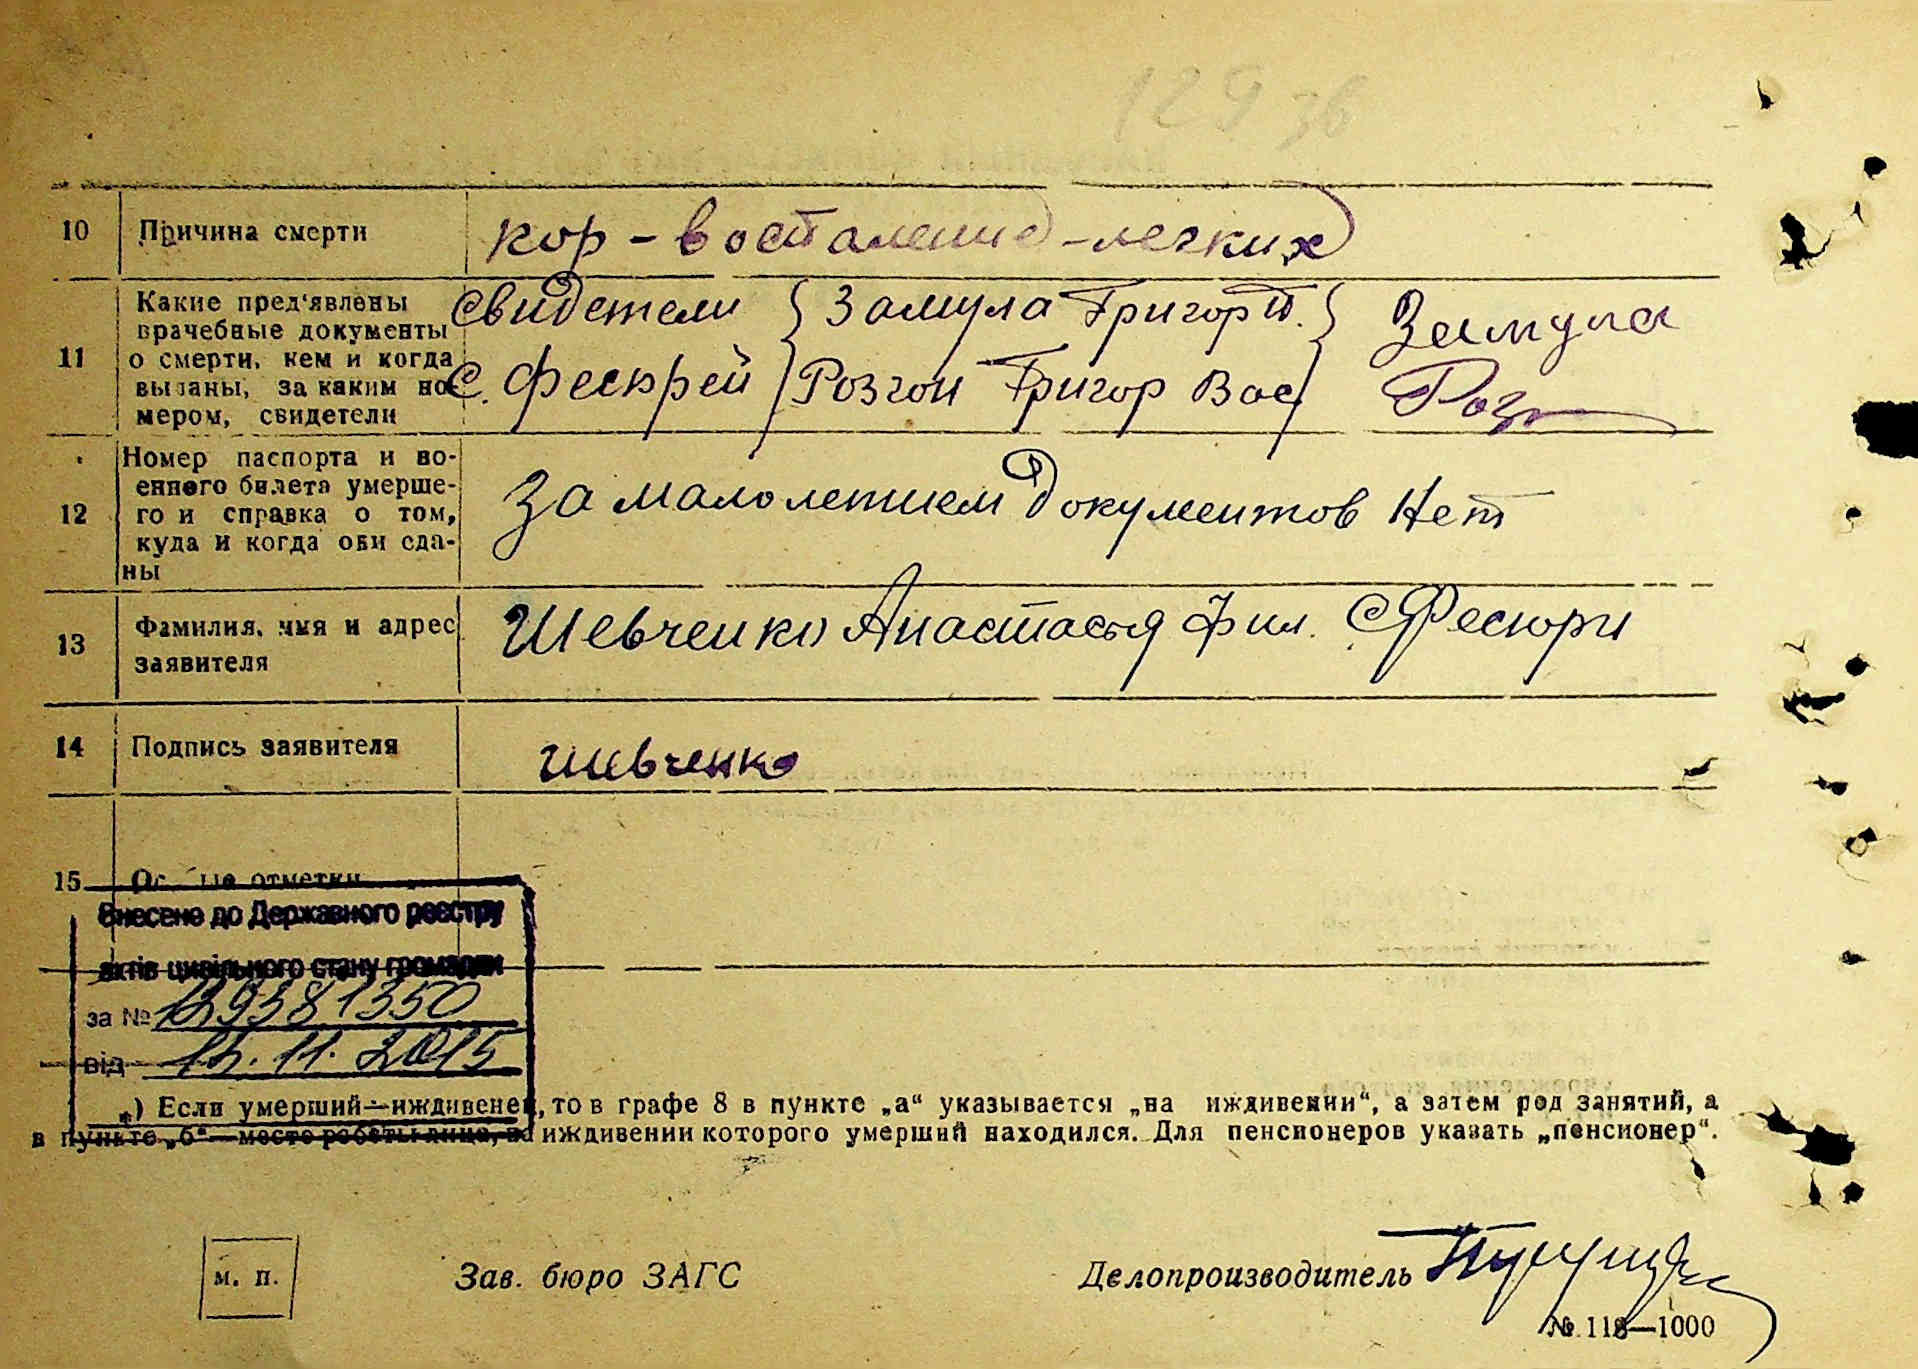 129 зв
10 Причина смерти кор - воспаление - легких
11 Какие пред'явлены врачебные документы о смерти, кем и когда выданы, за каким номером, свидетели
Свидетели } Замула Григор П. } Замула
с. Фескрей } Розгон Григор Вас } Розг
12 Номер паспорта и во-
енного билета умерше-
го и справка о том,
куда и когда они сда-
ны
За малолетием Документов Нет
13 Фамилия, имя и адрес
заявителя
Шевченко Анастасья Фил. С Фескюри
14 Подпись заявителя Шевченко
15 Особые отметки
Внесено до Державного реєстру
актів цивільного стану громадян
за №
від 11. 2015
*) Если умерший—иждивенец, то в графе 8 в пункте „а“ указывается „на иждивении“, а затем род занятий, а
в пункте „б“—место работы лица, на иждивении которого умерший находился. Для пенсионеров указать „пенсионер“.
м. п. Зав. бюро ЗАГС Делопроизводитель
№ 118—1000